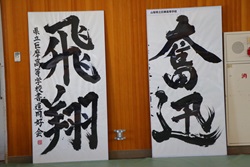 飛翔
県立巨摩高等学校書道同好会
奮迅